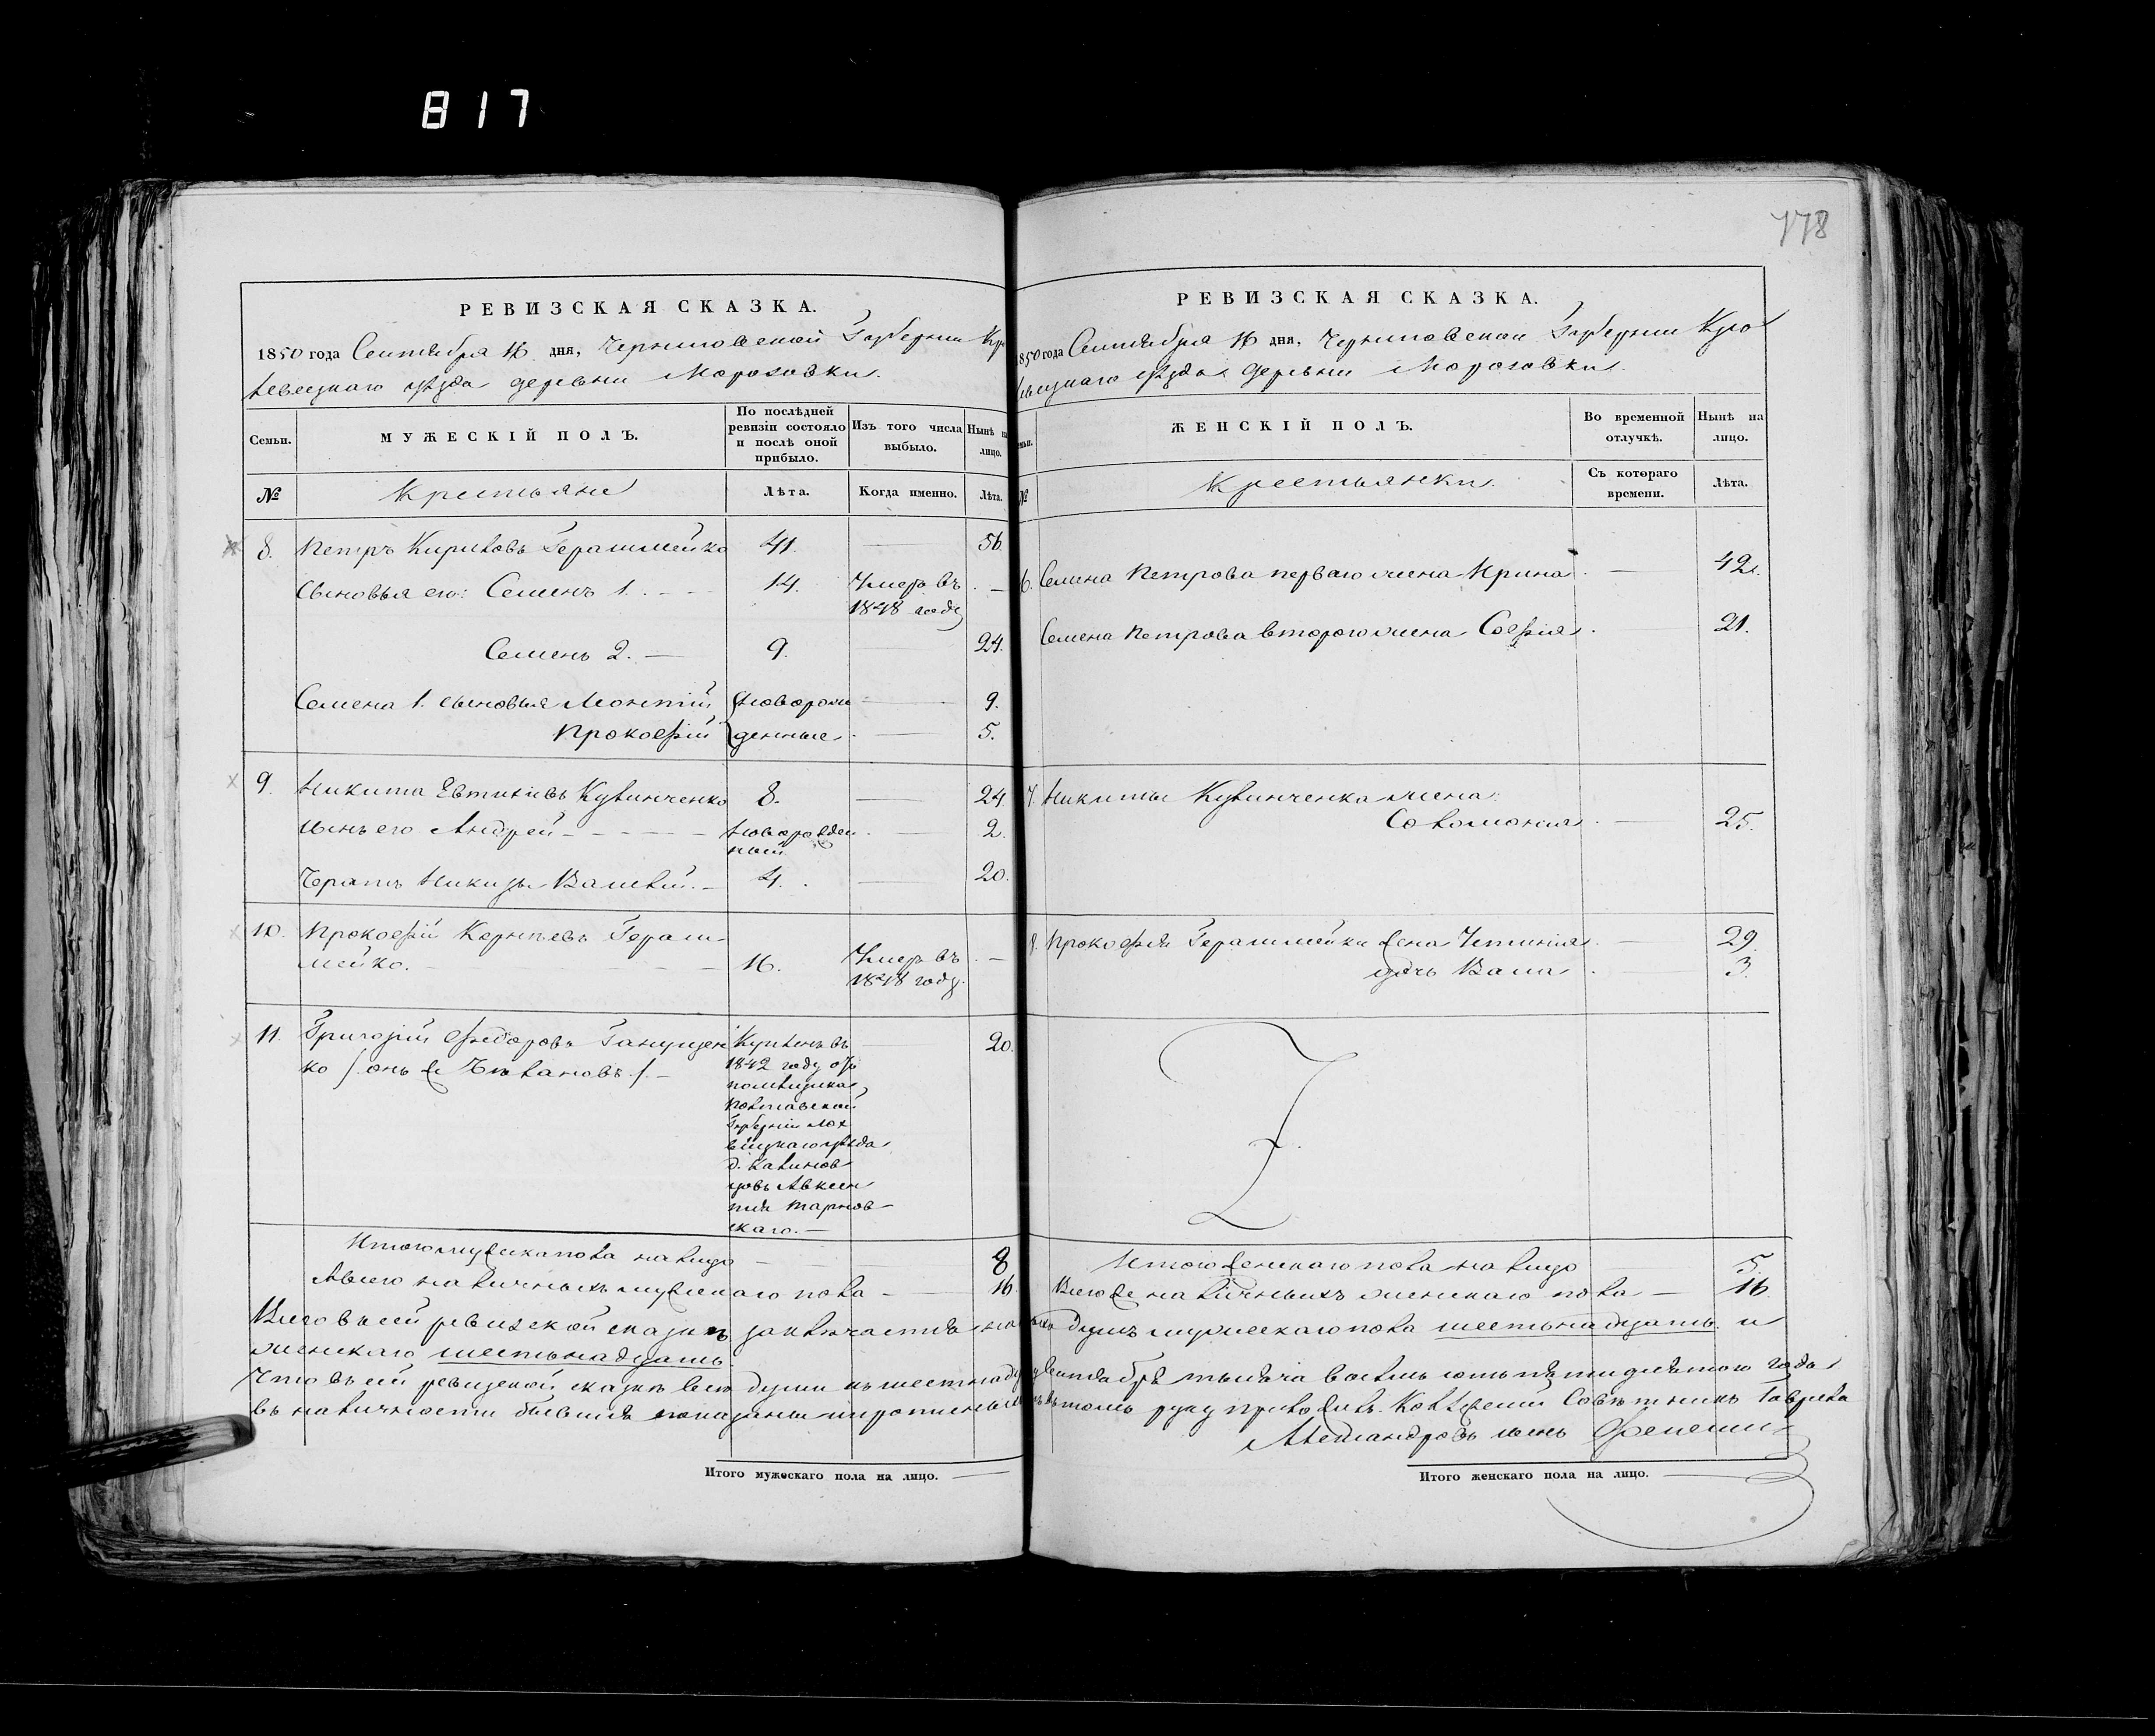 817
778
РЕВИЗСКАЯ СКАЗКА.
1850 года Сентября 16 дня, Черниговской Губернии Кро
левецкаго уѣзда деревни Морозовки.
Семьи.
МУЖЕСКІЙ ПОЛЪ.
По послѣдней ревизіи состояло и послѣ оной прибыло.
Изъ того числа выбыло.
Нынѣ на лицо.
№
Крестьяне
Лѣта.
Когда именно.
Лѣта.
8. Петръ Кириловъ Герашшейко 41. — 56.
Сыновья его: Семенъ 1. 14. Умеръ въ —
1848 году
Семенъ 2. — 9. — 24.
Семена 1. сыновья Леонтій новорож — 9.
Прокофій денные — 5.
9. Никита Евтихіевъ Кулинченко 8. — 24
сынъ его Андрей новорожден — 2.
ный
Братъ Никиты 4. — 20.
10. Прокофій Корнѣевъ Гераш
шейко. 16. Умеръ въ —
1848 году.
11. Григорій Федоровъ Ганущен Купленъ въ — 20.
ко /онъ же 1842 году отъ
помѣщика
Полтавской
Губерніи Лох
вицкаго уѣзда
д. Калинов
цовъ Авксен
тія Тарнов
скаго. —
Итого мужеска пола на лицо — 8
А всего наличныхъ мужескаго пола — 16
РЕВИЗСКАЯ СКАЗКА.
1850 года Сентября 16 дня, Черниговской Губерніи Кро
левецкаго уѣзда деревни Морозовки.
ЖЕНСКІЙ ПОЛЪ.
Во временной отлучкѣ.
Нынѣ на лицо.
№
Крестьянки
Съ котораго времени.
Лѣта.
6. Семена Петрова перваго жена Ирина — 42.
Семена Петрова втораго жена Софія — 21.
7. Никиты Кулинченка жена:
Соломонія — 25.
8. Прокофія Герашшейки жена — 29.
дочь — 3.
Итого женскаго пола на лицо 5.
Всего же наличныхъ женскаго пола — 16
Всего въ сей ревизской сказкѣ заключается на лицо душъ мужескаго пола шестьнадцать и
женскаго шестьнадцать
Что въ сей ревизской сказкѣ всѣ души къ шестнадц Сентября тысяча восемь сотъ пятидесятаго года
въ наличности бывшія показаны и прописныхъ нѣтъ въ томъ руку приложилъ. Коллежскій Совѣтникъ Гаврила
Александровъ сынъ
Итого мужескаго пола на лицо. —
Итого женскаго пола на лицо. —